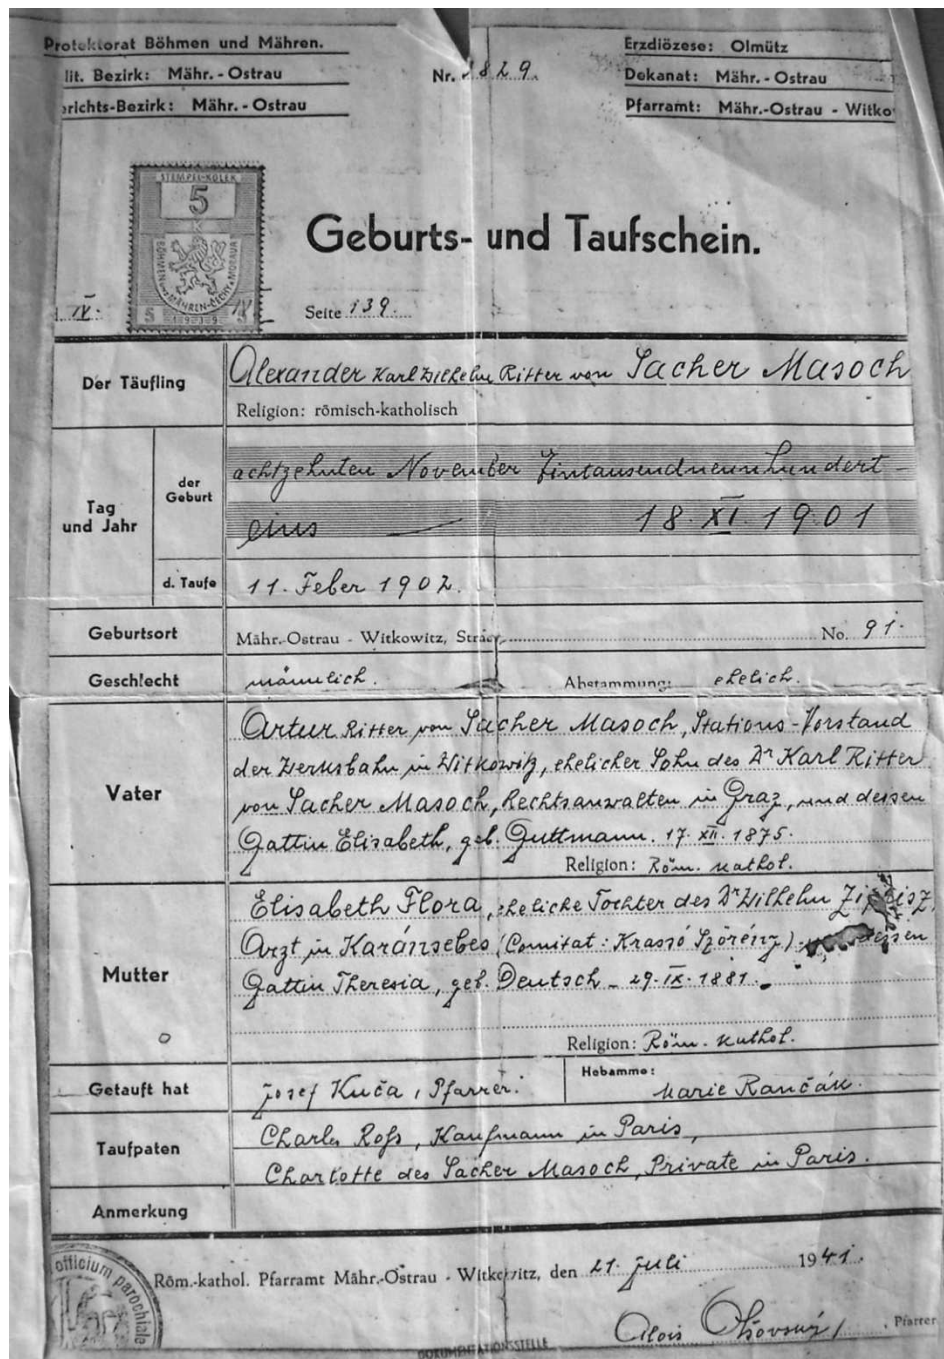 Protektorat Böhmen und Mähren.
lit. Bezirk: Mähr. - Ostrau
erichts-Bezirk: Mähr. - Ostrau
Nr. 1829.
Erzdiözese: Olmütz
Dekanat: Mähr. - Ostrau
Pfarramt: Mähr.-Ostrau - Witko
STEMPEL-KOLEK
5
BÖHMEN und MÄHREN-ČECHY a MORAVA
5 1939 5
IV.
Geburts- und Taufschein.
Seite 139.
Der Täufling
Alexander Karl Wilhelm Ritter von Sacher Masoch
Religion: römisch-katholisch
Tag und Jahr
der Geburt
achtzehnten November Eintausendneunhundert-
eins — 18. XI. 1901
d. Taufe 11. Feber 1902.
Geburtsort Mähr.-Ostrau - Witkowitz, No. 91.
Geschlecht männlich. Abstammung: ehelich.
Vater
Artur Ritter von Sacher Masoch, Stations-Vorstand
der Werksbahn in Witkowitz, ehelicher Sohn des Dr Karl Ritter
von Sacher Masoch, Rechtsanwalten in Graz, und dessen
Gattin Elisabeth, geb. Guttmann. 17. XII. 1875.
Religion: Röm. kathol.
Mutter
Elisabeth Flora, eheliche Tochter des Dr Wilhelm
Arzt in Karánsebes (Comitat: Krassó Szörény) dessen
Gattin Theresia, geb. Deutsch - 29. IX. 1881.
Religion: Röm. kathol.
Getauft hat Josef Kuča, Pfarrer.
Hebamme: Marie Rančák.
Taufpaten
Charles Roß, Kaufmann in Paris,
Charlotte des Sacher Masoch, Private in Paris.
Anmerkung
officium parochiale
Röm.-kathol. Pfarramt Mähr.-Ostrau - Witkowitz, den 21. Juli 1941.
Alois Pfarrer
DOKUMENTATIONSSTELLE